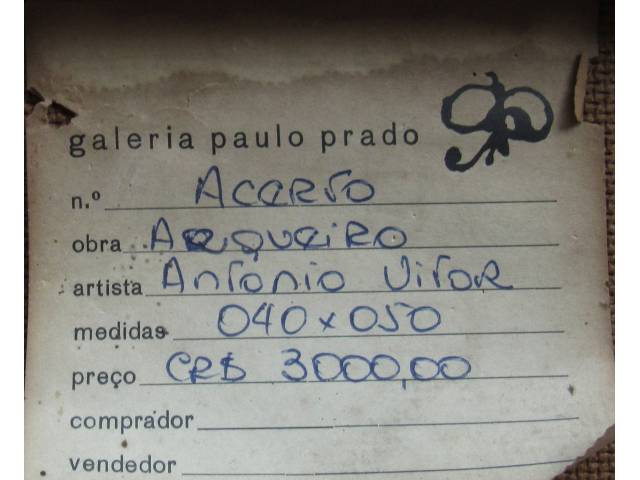 galeria paulo prado
n.º ACERVO
obra ARQUEIRO
artista ANTONIO VITOR
medidas 040x050
preço CR$ 3000,00
comprador
vendedor